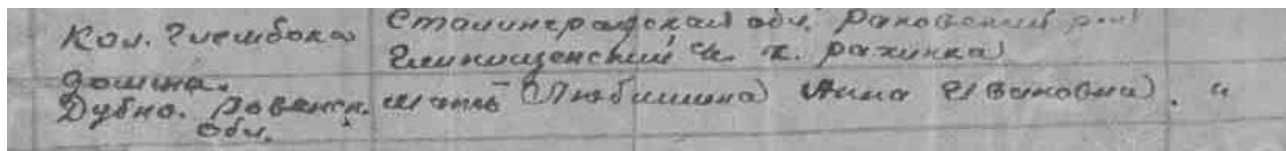 Кол. Глембока Сталинградская обл. Раковский р-н
Глинищенский с. х. Рахинка
долина.
Дубно. Ровенск. мать Любишина Анна Ивановна. "
обл.